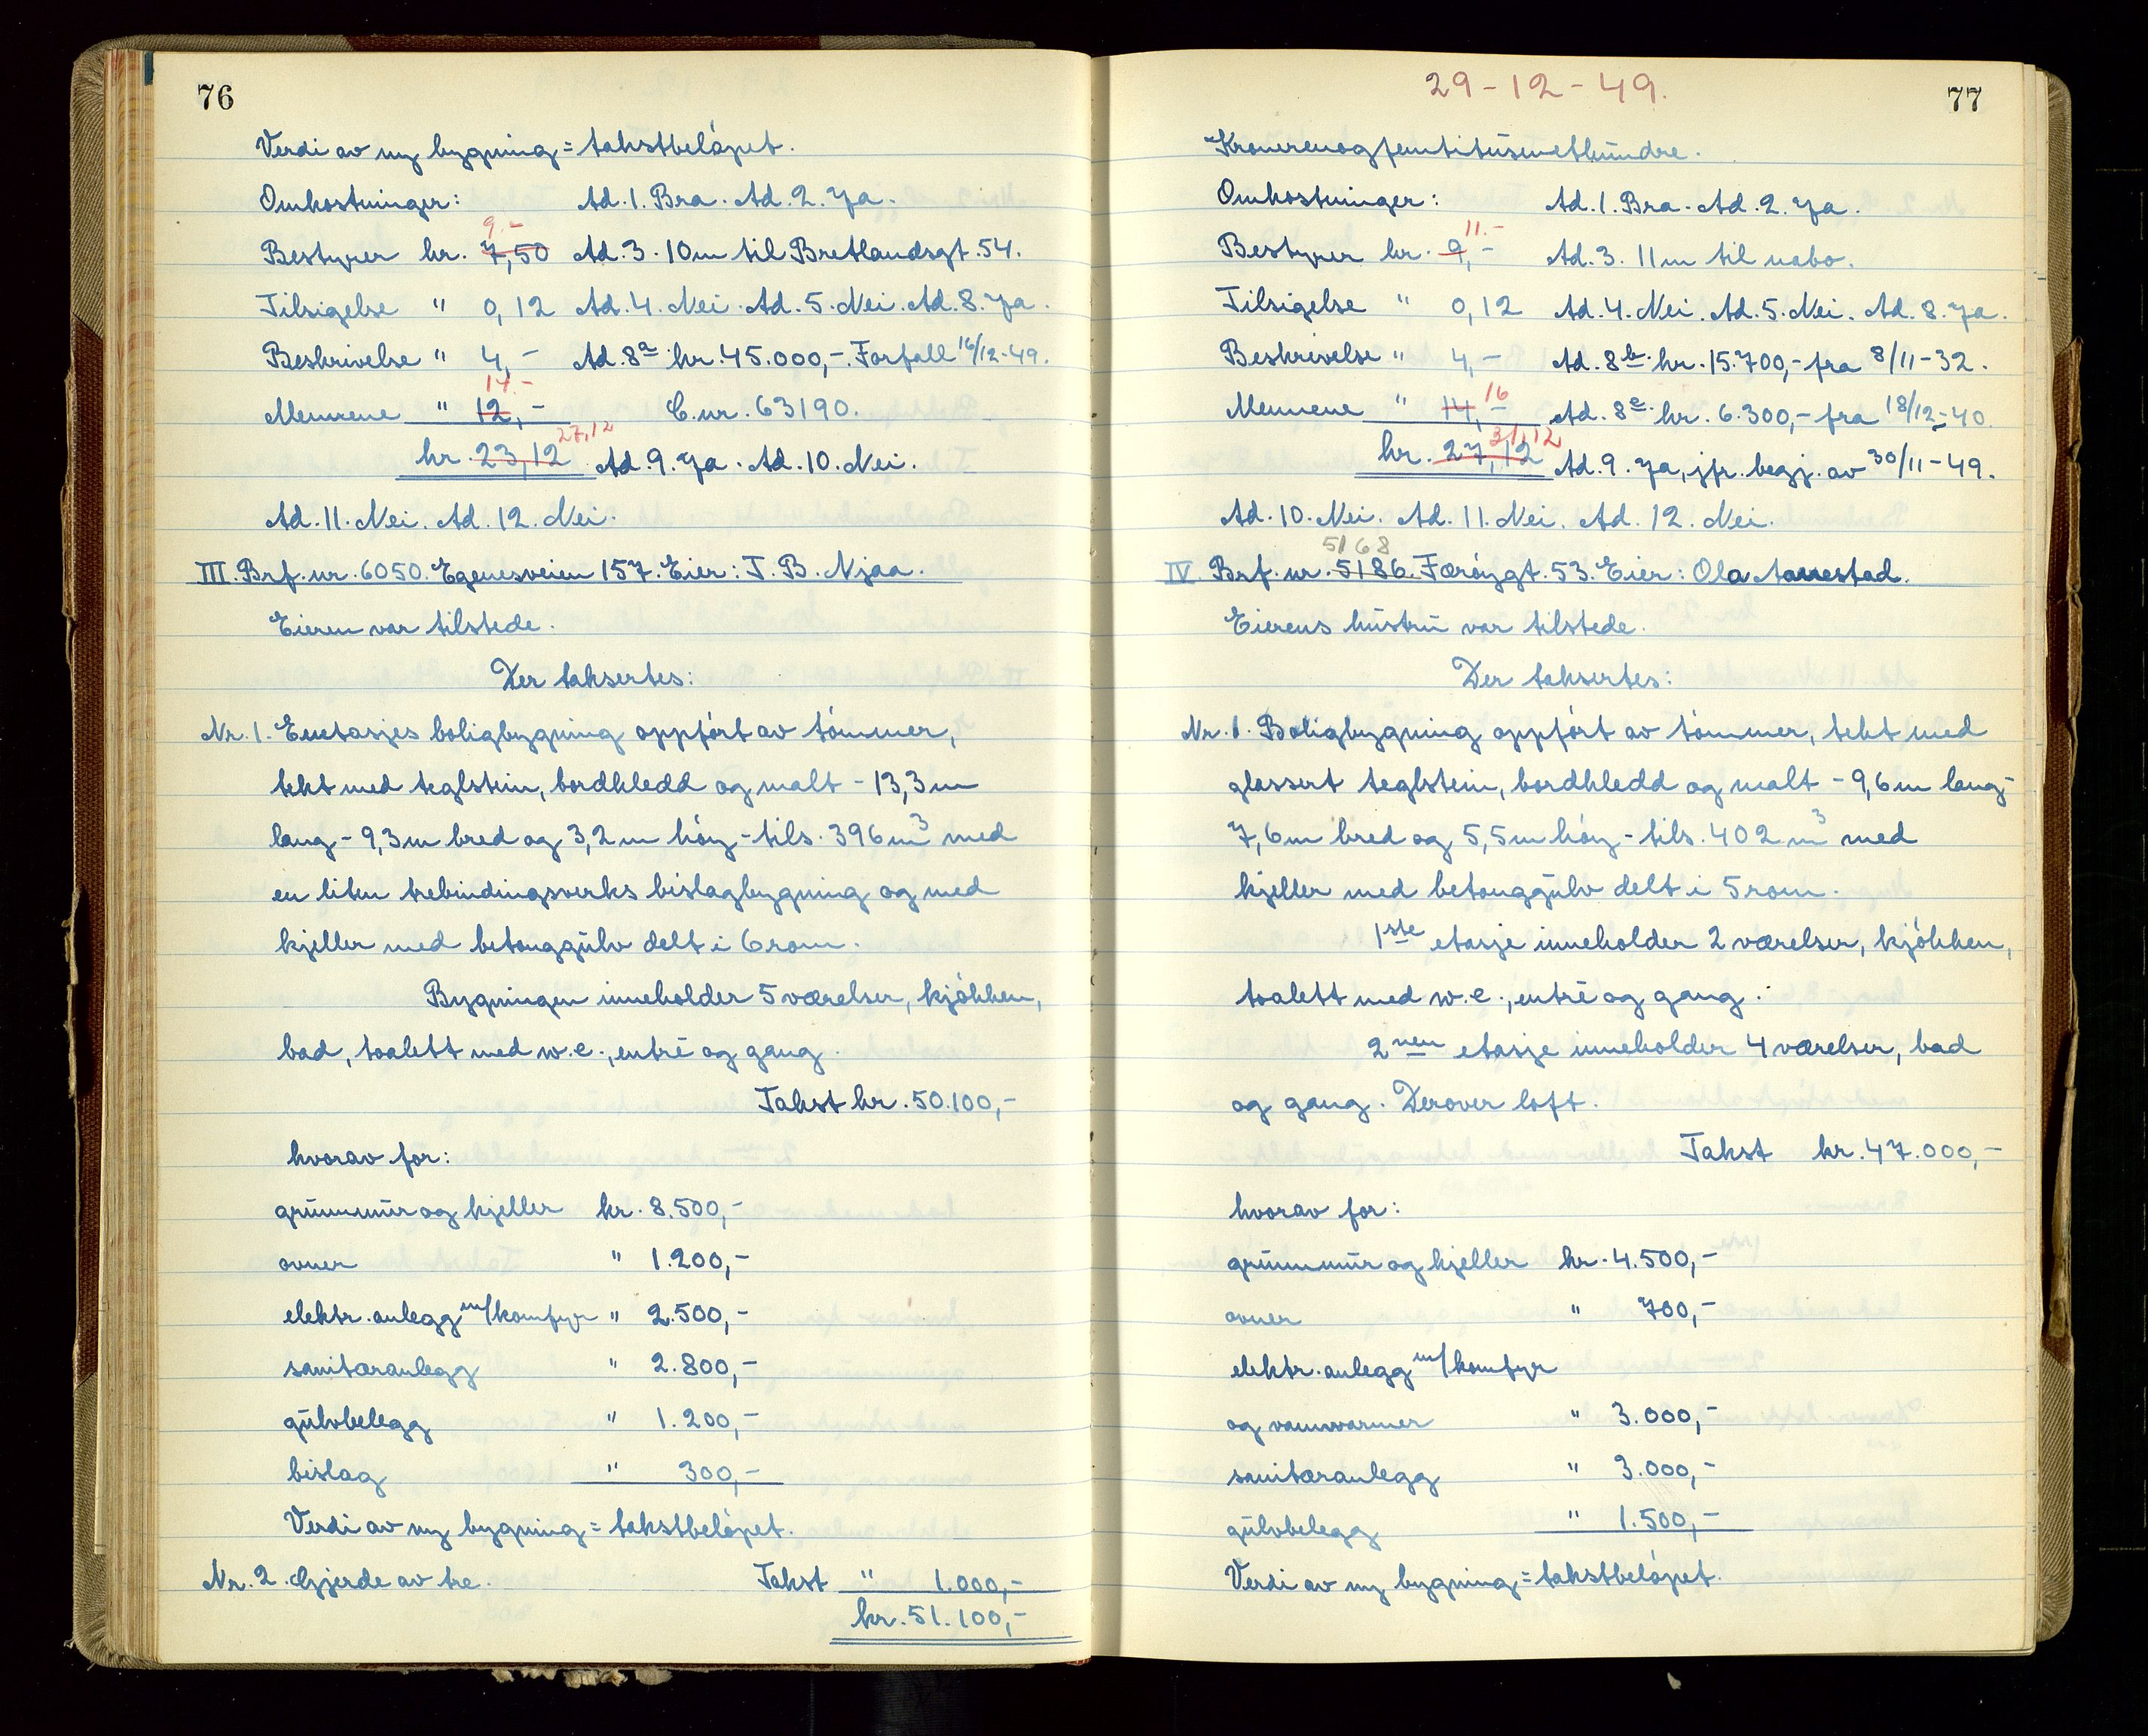 76
Verdi av ny bygning = takstbeløpet.
Omkostninger: Ad. 1. Bra. Ad. 2. Ja.
9.-
Bestyrer kr. 7,50 Ad. 3. 10m til Bretlandsgt. 54.
Tilsigelse " 0,12 Ad. 4. Nei. Ad. 5. Nei. Ad. 8. Ja.
Beskrivelse " 4,- Ad. 8a kr. 45.000,-. Forfall 16/12-49.
14.-
Mennene " 12,- C. nr. 63190.
27,12
kr. 23,12 Ad. 9. Ja. Ad. 10. Nei.
Ad. 11. Nei. Ad. 12. Nei.
III. Brf. nr. 6050. Egenesveien 157. Eier: T. B. Njaa.
Eieren var tilstede.
Der taksertes:
Nr. 1. Enetasjes boligbygning oppført av tømmer,
tekt med teglstein, bordkledd og malt - 13,3m
lang - 9,3m bred og 3,2m høy - tils. 396m³ med
en liten trebindingsverks bislagbygning og med
kjeller med betonggulv delt i 6 rom.
Bygningen inneholder 5 værelser, kjøkken,
bad, toalett med w.c., entré og gang.
Takst kr. 50.100,-
hvorav for:
grunnmur og kjeller kr. 8.500,-
ovner " 1.200,-
elektr. anlegg m/komfyr " 2.500,-
sanitæranlegg " 2.800,-
gulvbelegg " 1.200,-
bislag " 300,-
Verdi av ny bygning = takstbeløpet.
Nr. 2. Gjerde av tre. Takst " 1.000,-
kr. 51.100,-
29-12-49.
77
Kronerenogfemtitusenethundre.
Omkostninger: Ad. 1. Bra. Ad. 2. Ja.
11.-
Bestyrer kr. 9,- Ad. 3. 11m til nabo.
Tilsigelse " 0,12 Ad. 4. Nei. Ad. 5. Nei. Ad. 8. Ja.
Beskrivelse " 4,- Ad. 8b. kr. 15.700,- fra 8/11-32.
16
Mennene " 14,- Ad. 8c. kr. 6.300,- fra 18/12-40
31,12
kr. 27,12 Ad. 9. Ja, jfr. begj. av 30/11-49.
Ad. 10. Nei. Ad. 11. Nei. Ad. 12. Nei.
5168
IV. Brf. nr. 5186. Færøygt. 53. Eier: Ola Aanestad.
Eierens hustru var tilstede.
Der taksertes:
Nr. 1. Boligbygning oppført av tømmer, tekt med
glassert teglstein, bordkledd og malt - 9,6m lang -
7,6m bred og 5,5m høy - tils. 402 m³ med
kjeller med betonggulv delt i 5 rom.
1ste etasje inneholder 2 værelser, kjøkken,
toalett med w.c., entré og gang.
2nen etasje inneholder 4 værelser, bad
og gang. Derover loft.
Takst kr. 47.000,-
hvorav for:
grunnmur og kjeller kr. 4.500,-
ovner " 700,-
elektr. anlegg m/komfyr
og vannvarmer " 3.000,-
sanitæranlegg " 3.000,-
gulvbelegg " 1.500,-
Verdi av ny bygning = takstbeløpet.